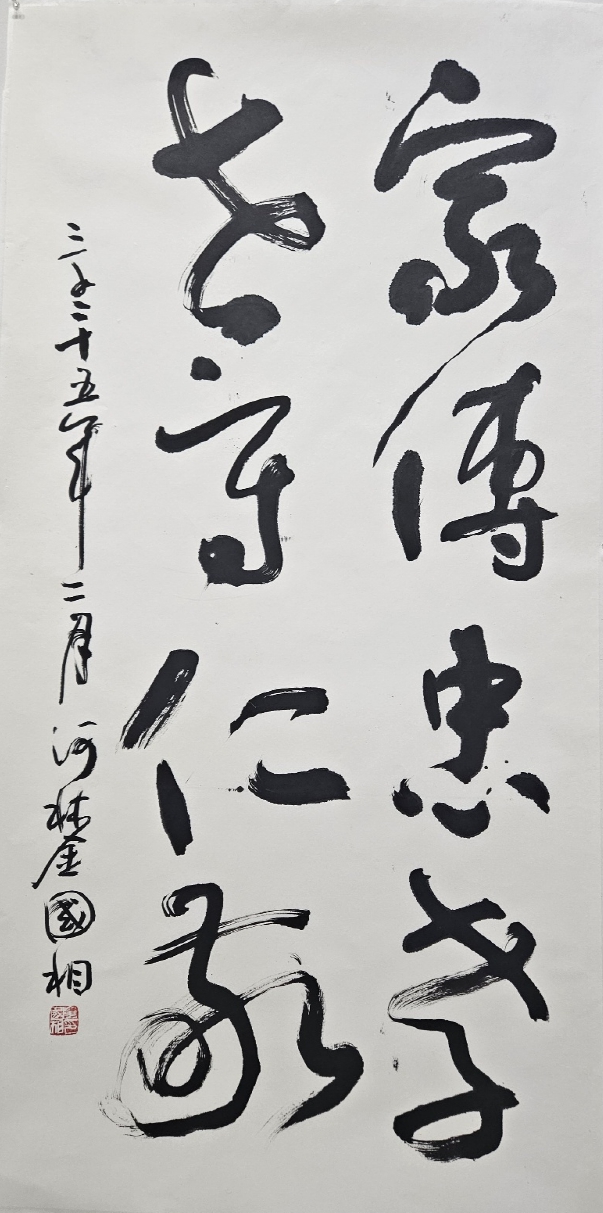 家傳忠孝
世守仁敬
二千二十五年二月 河林金國相